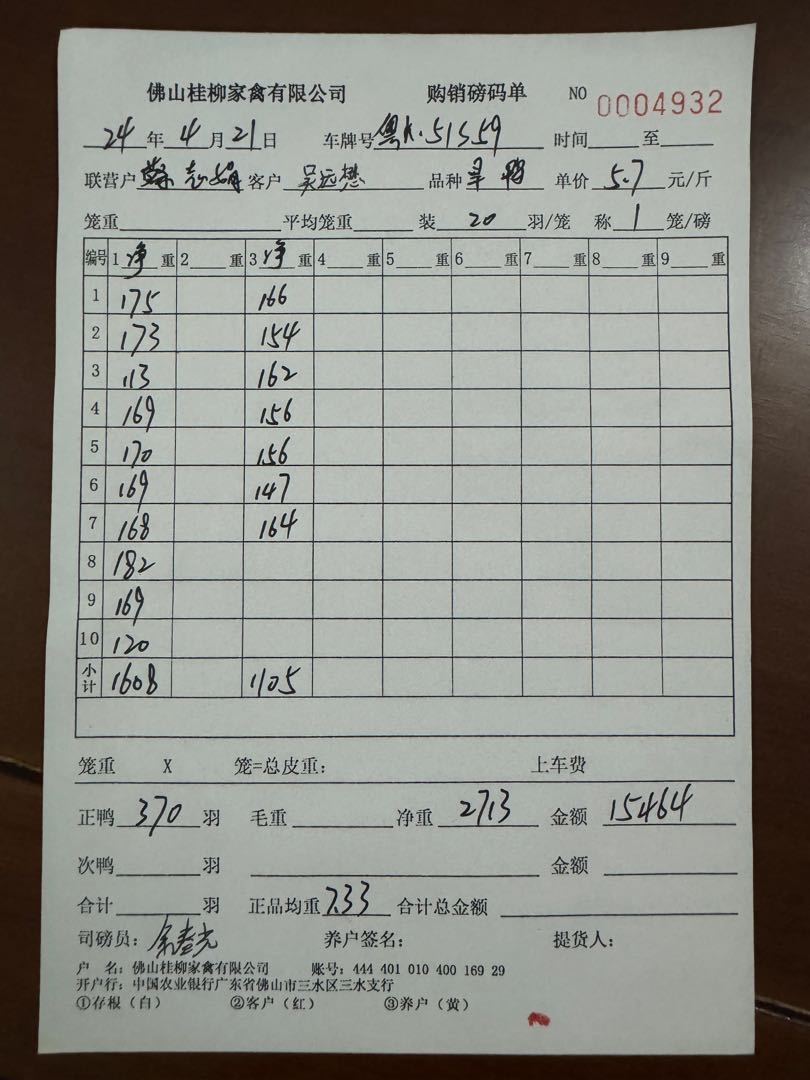 佛山桂柳家禽有限公司 购销磅码单 NO 0004932
24 年 4 月 21 日 车牌号 粤K·51S59 时间 至
联营户 志娟 客户 吴远懋 品种 鸭 单价 5.7 元/斤
笼重 平均笼重 装 20 羽/笼 称 1 笼/磅
编号 1 净 重 2 重 3 净 重 4 重 5 重 6 重 7 重 8 重 9 重
1 175 166
2 173 154
3 113 162
4 169 156
5 170 156
6 169 147
7 168 164
8 182
9 169
10 120
小计 1608 1105
笼重 X 笼=总皮重: 上车费
正鸭 370 羽 毛重 净重 2713 金额 15464
次鸭 羽 金额
合计 羽 正品均重 7.33 合计总金额
司磅员: 养户签名: 提货人:
户 名: 佛山桂柳家禽有限公司 账号: 444 401 010 400 169 29
开户行: 中国农业银行广东省佛山市三水区三水支行
①存根(白) ②客户(红) ③养户(黄)